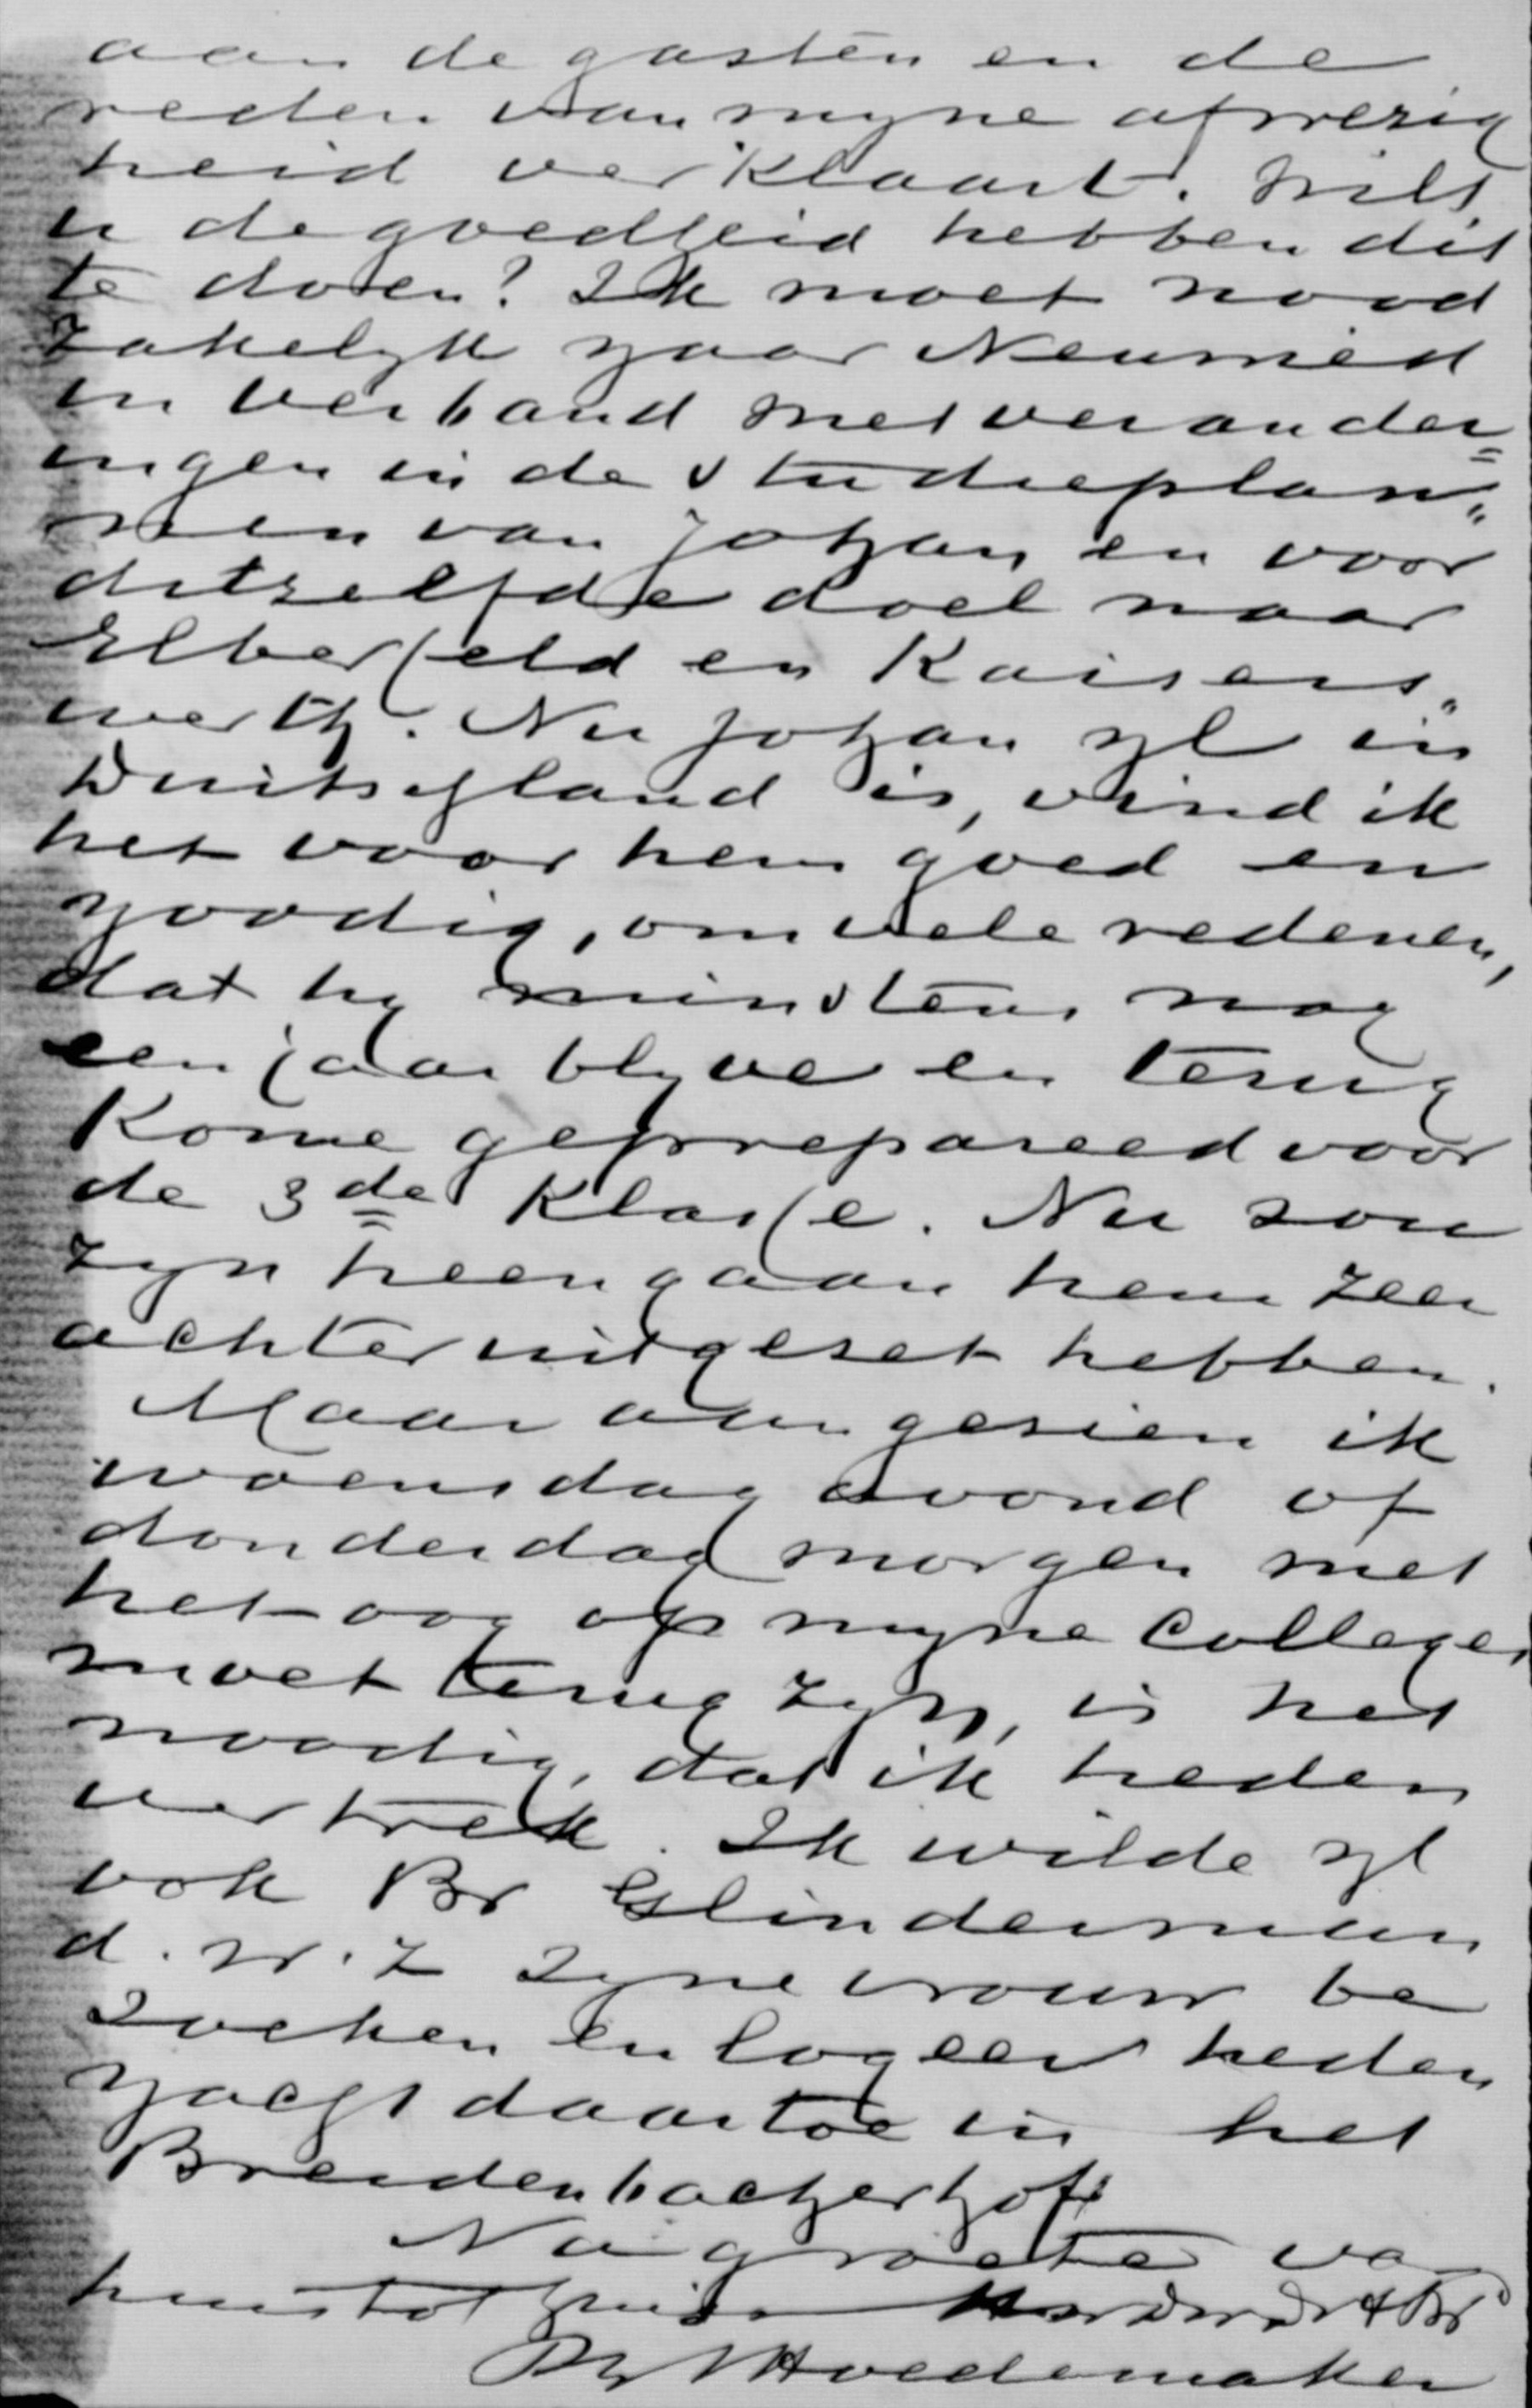 aan de gasten en de
reden van myne afwezig
heid verklaart. Wilt
u de goedheid hebben dit
te doen? Ik moet nood
zakelyk naar Neuwied
in verband met verander=
ingen in de studieplan„
nen van Johan en voor
ditzelfde doel naar
Elberfeld en Kaisers„
werth. Nu Johan yl in
Duitschland is, vind ik
het voor hem goed en
noodig, om vele redenen,
dat hy minstens nog
een jaar blyve en terug
Kome geprepareed voor
de 3de Klasse. Nu zou
zyn heengaan hem zeer
achteruitgezet hebben.
Maar aangezien ik
woensdag avond of
donderdag morgen met
het oog op myne Colleges
moet terug zyn, is het
noodig, dat ik heden
vertrek. Ik wilde yl
ook Br Glinderman
d. w. z zyne vrouw be
zoeken en logeer heden
nacht daartoe in het
Breidenbacherhof
Na groete van
huis tot huis
Ph J Hoedemaker